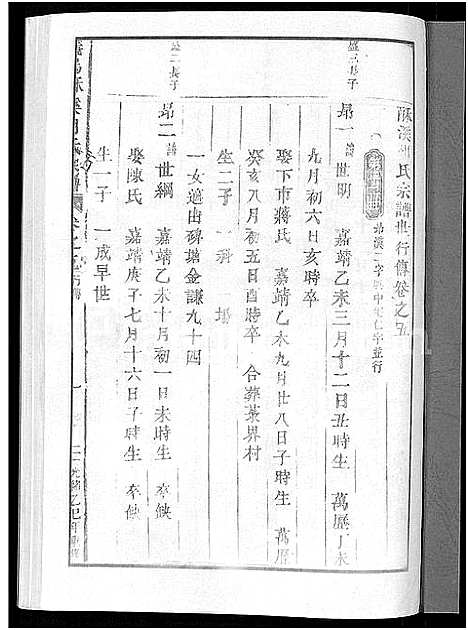 酥溪 氏宗譜世行傳卷之五
字與中 仁字並行
盛三長子
昴一 諱世明 嘉靖乙未三月十二日丑時生 萬歷丁未
九月初六日亥時卒
娶下市蔣氏 嘉靖乙未九月廿八日子時生 萬歷
癸亥八月初五日酉時卒 合葬茶界村
生二子 一科 一楊
一女適由碑塘金謙九十四
盛二長子
昴二 諱世綱 嘉靖乙未十月初一日未時生 卒缺
娶陳氏 嘉靖庚子七月十六日子時生 卒缺
生一子 一成早世
光緒乙巳年重修